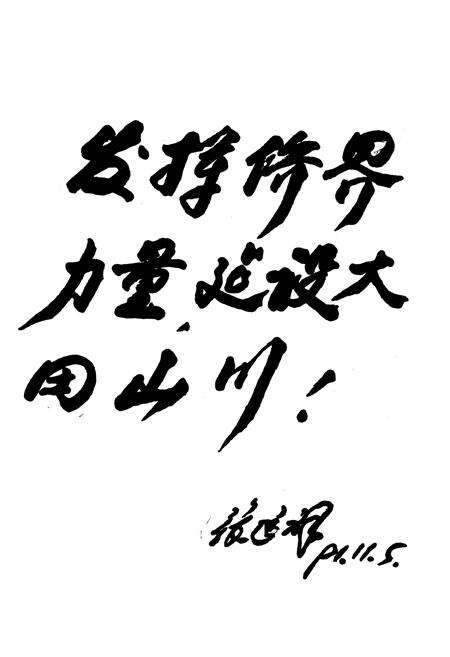 发挥侨界
力量，建设大
田山川！
91.11.5.